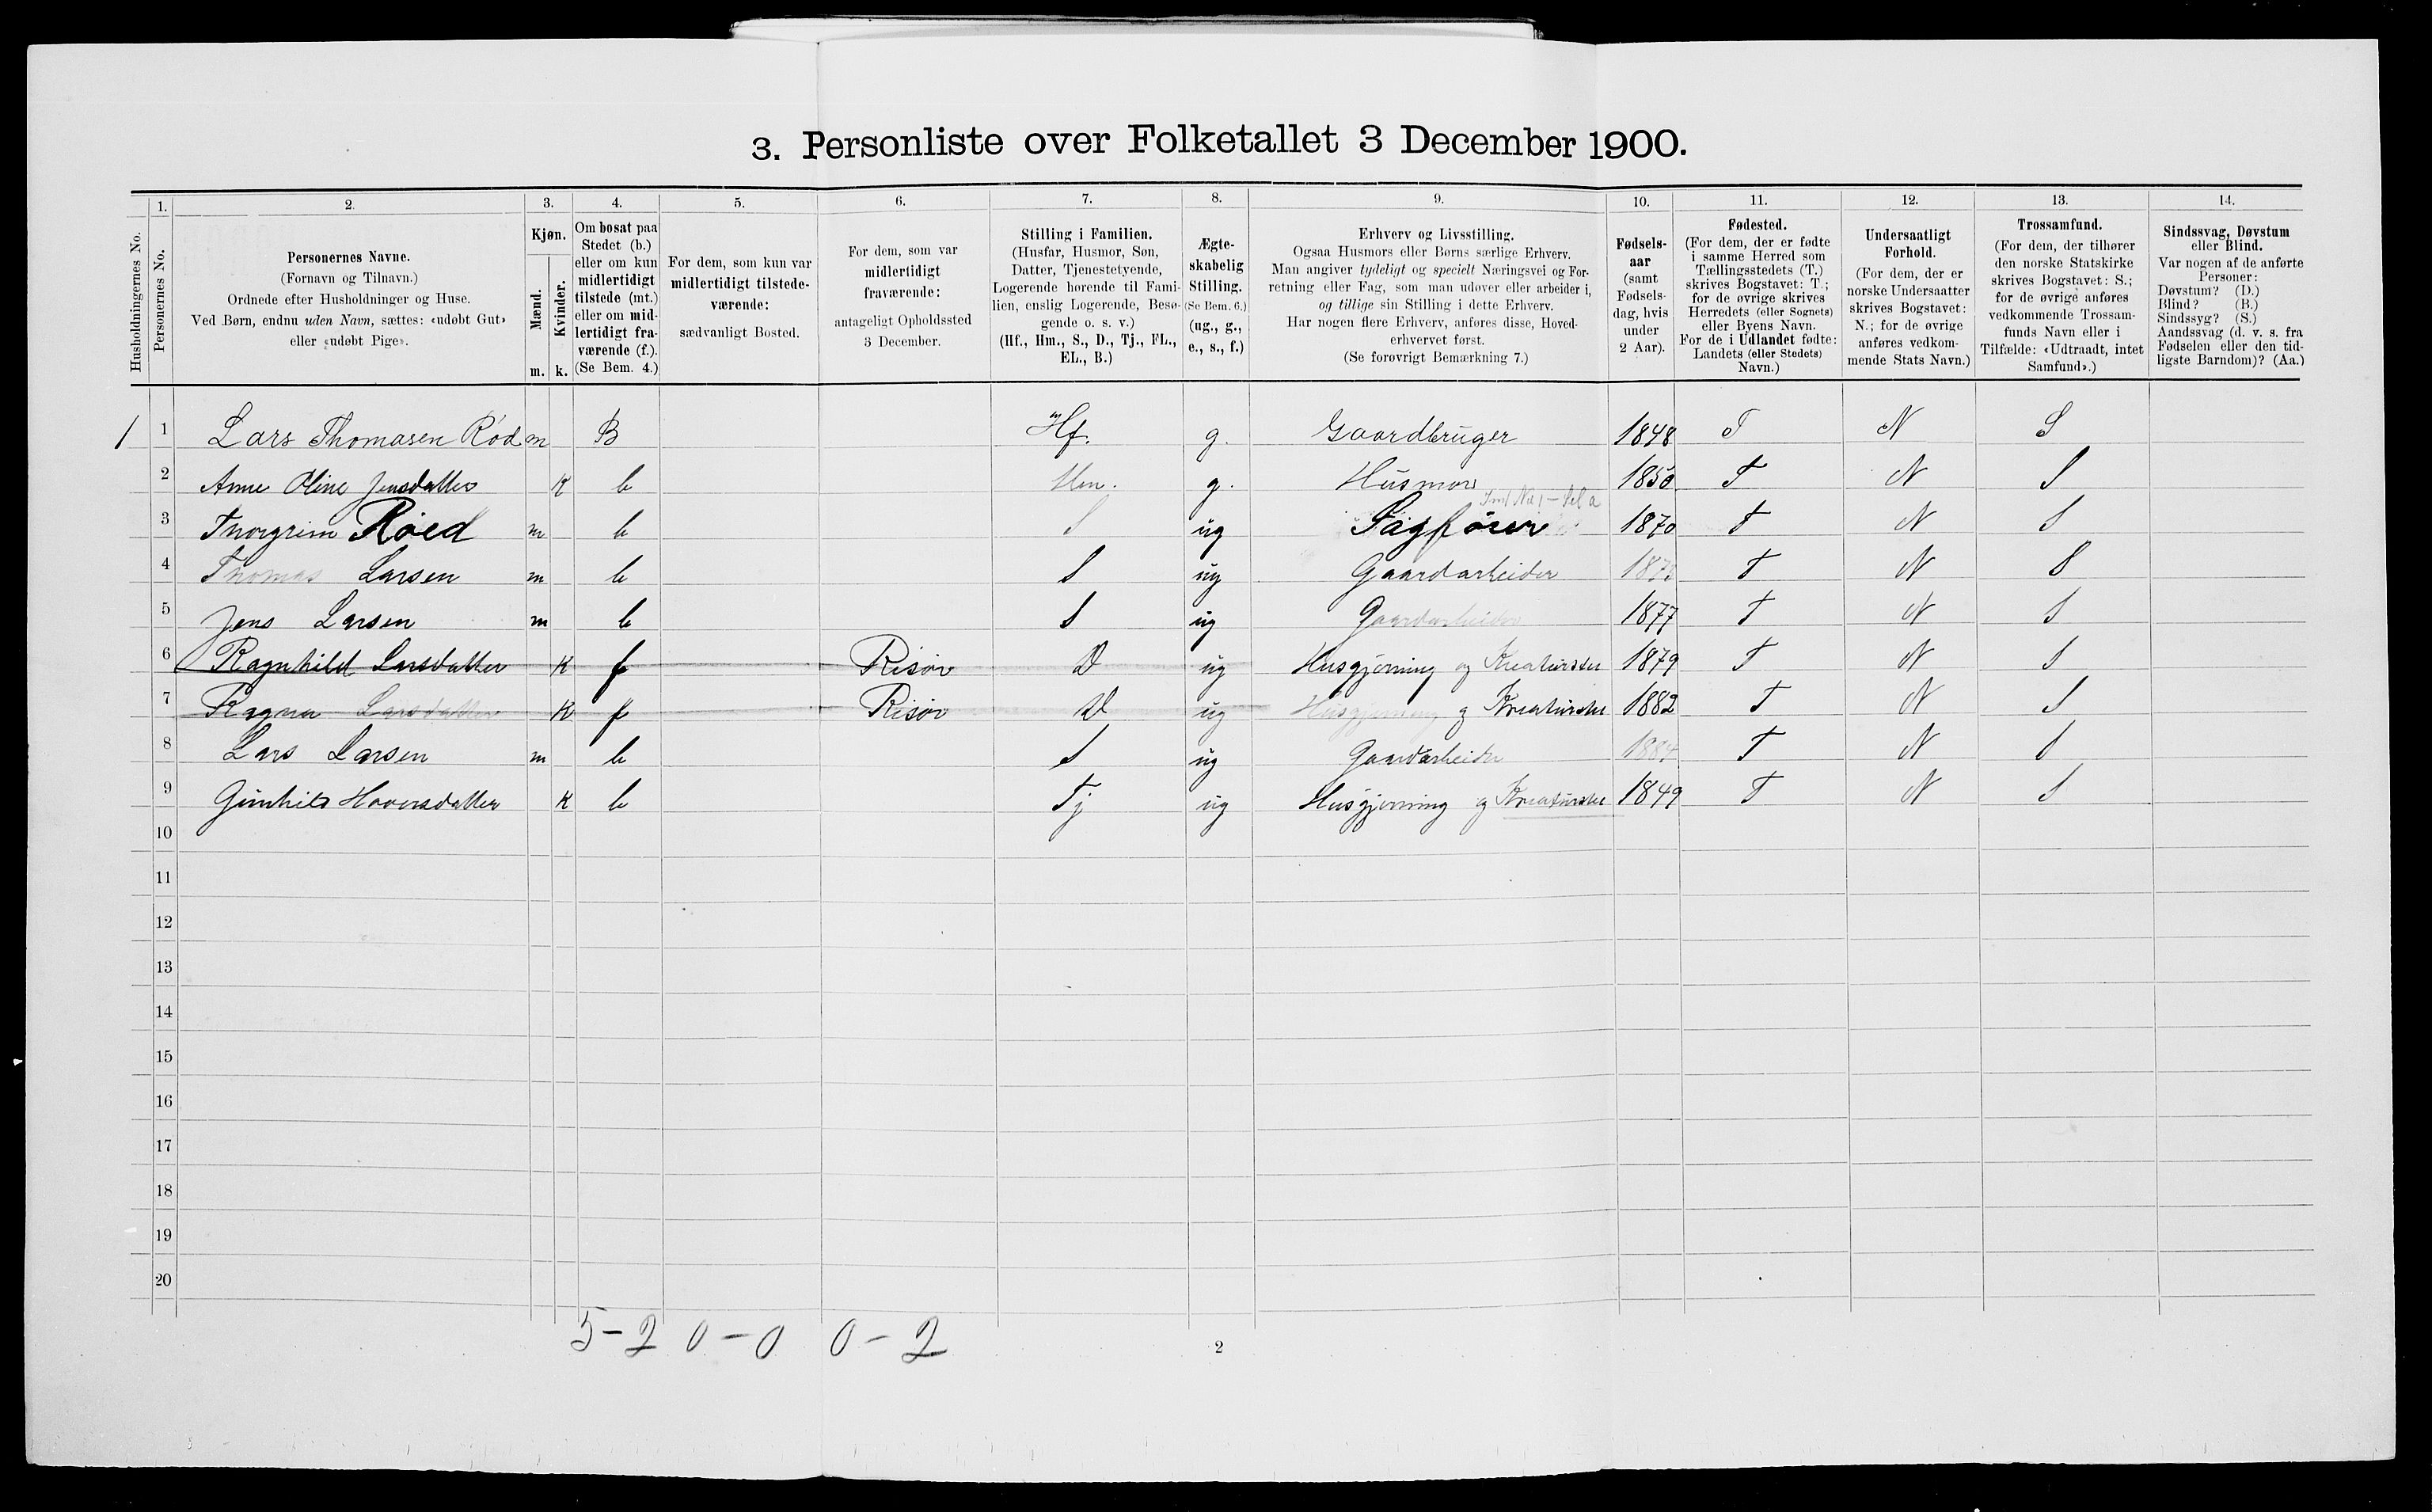 3. Personliste over Folketallet 3 December 1900.
Husholdningernes No.
1.
Personernes No.
2.
Personernes Navne.
(Fornavn og Tilnavn.)
Ordnede efter Husholdninger og Huse.
Ved Børn, endnu uden Navn, sættes: «udøbt Gut»
eller «udøbt Pige».
3.
Kjøn.
Mænd.
Kvinder.
m. k.
4.
Om bosat paa
Stedet (b.)
eller om kun
midlertidigt
tilstede (mt.)
eller om mid-
lertidigt fra-
værende (f.).
(Se Bem. 4.)
5.
For dem, som kun var
midlertidigt tilstede-
værende:
sædvanligt Bosted.
6.
For dem, som var
midlertidigt
fraværende:
antageligt Opholdssted
3 December.
7.
Stilling i Familien.
(Husfar, Husmor, Søn,
Datter, Tjenestetyende,
Logerende hørende til Fami-
lien, enslig Logerende, Besø-
gende o. s. v.)
(Hf., Hm., S., D., Tj., FL.,
EL., B.)
8.
Ægte-
skabelig
Stilling.
(Se Bem. 6.)
(ug., g.,
e., s., f.)
9.
Erhverv og Livsstilling.
Ogsaa Husmors eller Børns særlige Erhverv.
Man angiver tydeligt og specielt Næringsvei og For-
retning eller Fag, som man udøver eller arbeider i,
og tillige sin Stilling i dette Erhverv.
Har nogen flere Erhverv, anføres disse, Hoved-
erhvervet først.
(Se forøvrigt Bemærkning 7.)
10.
Fødsels-
aar
(samt
Fødsels-
dag, hvis
under
2 Aar).
11.
Fødested.
(For dem, der er fødte
i samme Herred som
Tællingsstedets (T.)
skrives Bogstavet: T.;
for de øvrige skrives
Herredets (eller Sognets)
eller Byens Navn.
For de i Udlandet fødte:
Landets (eller Stedets)
Navn.)
12.
Undersaatligt
Forhold.
(For dem, der er
norske Undersaatter
skrives Bogstavet:
N.; for de øvrige
anføres vedkom-
mende Stats Navn.)
13.
Trossamfund.
(For dem, der tilhører
den norske Statskirke
skrives Bogstavet: S.;
for de øvrige anføres
vedkommende Trossam-
funds Navn eller i
Tilfælde: «Udtraadt, intet
Samfund».)
14.
Sindssvag, Døvstum
eller Blind.
Var nogen af de anførte
Personer:
Døvstum? (D.)
Blind? (B.)
Sindssyg? (S.)
Aandssvag (d. v. s. fra
Fødselen eller den tid-
ligste Barndom)? (Aa.)
1 1 Lars Thomasen Rød m B Hf. g. Gaardbruger 1848 T N S
2 Anne Oline Jensdatter K b Hm. g. Husmor 1850 T N S
3 Thorgrim Røed m b S ug Sagfører 1870 T N S
4 Thomas Larsen m b S ug Gaardarbeider T N S
5 Jens Larsen m b S ug Gaardarbeider 1877 T N S
6 Ragnhild Larsdatter K f Risør D ug Husgjerning og Kreaturstel 1879 T N S
7 Ragna Larsdatter K f Risør D ug Husgjerning og Kreaturstel 1882 T N S
8 Lars Larsen m b S ug Gaardarbeider 1884 T N S
9 Gunhild Hoversdatter K b Tj ug Husgjerning og Kreaturstel 1849 T N S
10
11
12
13
14
15
16
17
18
19
20
5-2 0-0 0-2
2